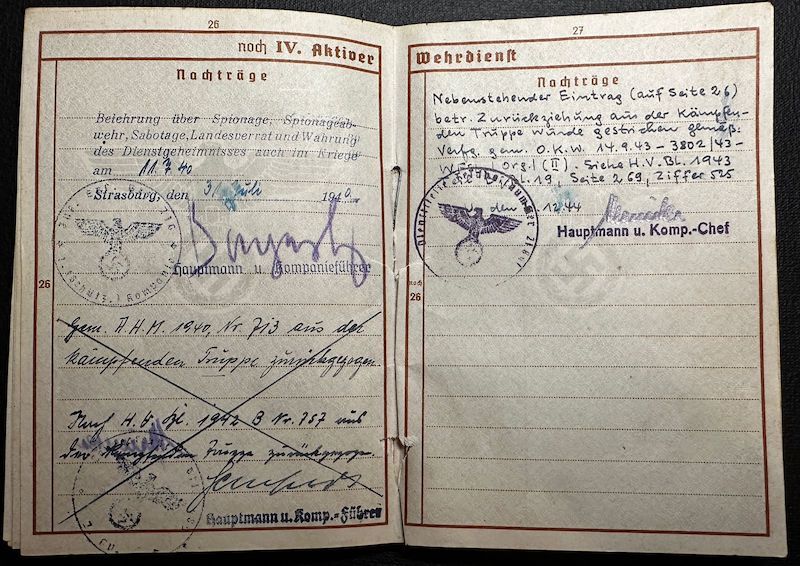 26
noch IV. Aktiver
Nachträge
Belehrung über Spionage, Spionageab-
wehr, Sabotage, Landesverrat und Wahrung
des Dienstgeheimnisses auch im Kriege
am 11. 7. 40
Strasburg, den 3. Juli 1940.
Hauptmann u. Kompanieführer
26
Gem. A.H.M. 1940, Nr. 713 aus der
kämpfenden Truppe zurückgezogen
Nach H.V.Bl. 1942 B Nr. 757 aus
der kämpfenden Truppe zurückgezogen
Hauptmann u. Komp.-Führer
27
Wehrdienst
Nachträge
Nebenstehender Eintrag (auf Seite 26)
betr. Zurückziehung aus der Kämpfen-
den Truppe wurde gestrichen gemäß:
Verfg. gem. O.K.W. 14.9.43 – 3802/43 –
Org. (II). Siehe H.V.Bl. 1943
Bl. 19, Seite 269, Ziffer 525
den 12.44
Dienststelle Feldpostnummer
Hauptmann u. Komp.-Chef
noch
26